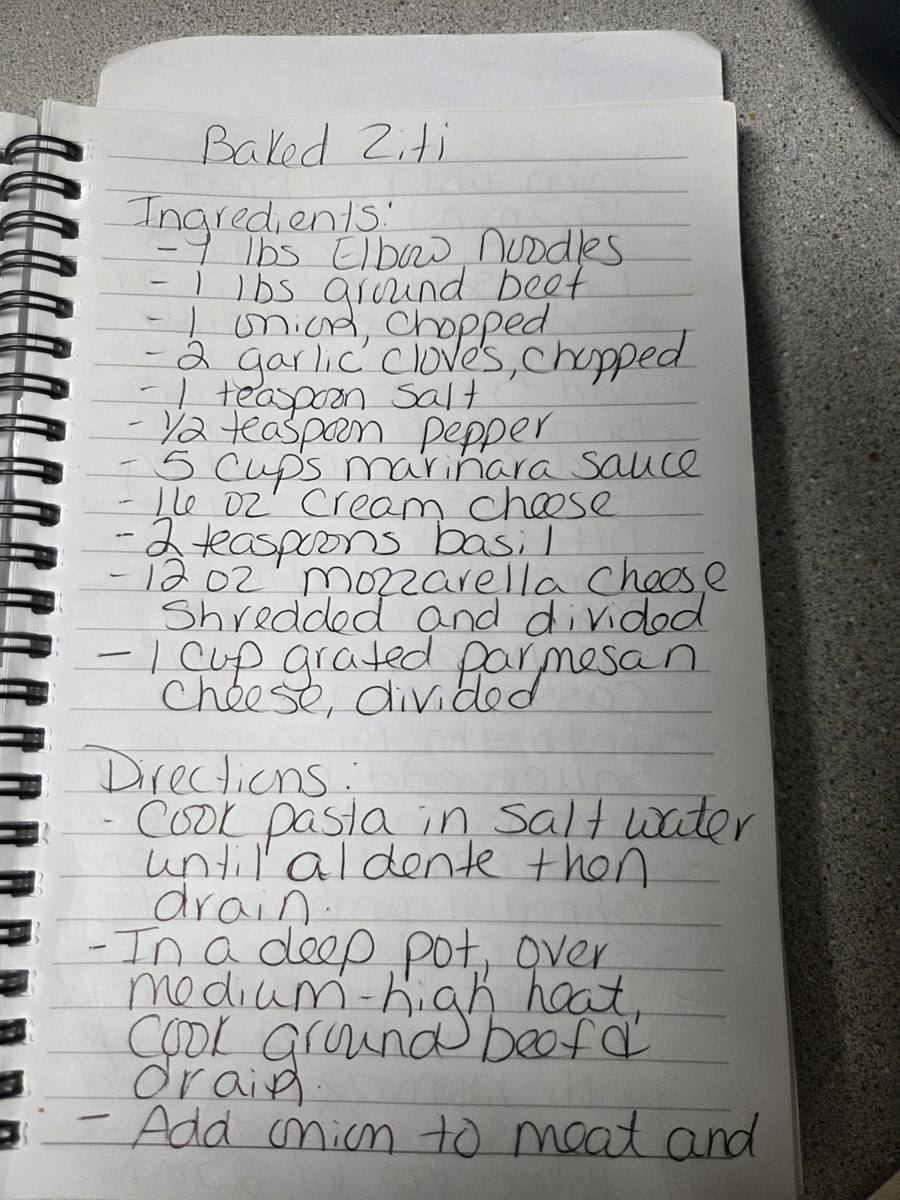 Baked Ziti
Ingredients:
- 1 lbs Elbow Noodles
- 1 lbs ground beef
- 1 onion, chopped
- 2 garlic cloves, chopped
- 1 teaspoon salt
- 1/2 teaspoon pepper
- 5 cups marinara sauce
- 16 oz cream cheese
- 2 teaspoons basil
- 12 oz mozzarella cheese
shredded and divided
- 1 cup grated parmesan
cheese, divided
Directions:
- Cook pasta in salt water
until al dente then
drain.
- In a deep pot, over
medium-high heat,
cook ground beef &
drain.
- Add onion to meat and